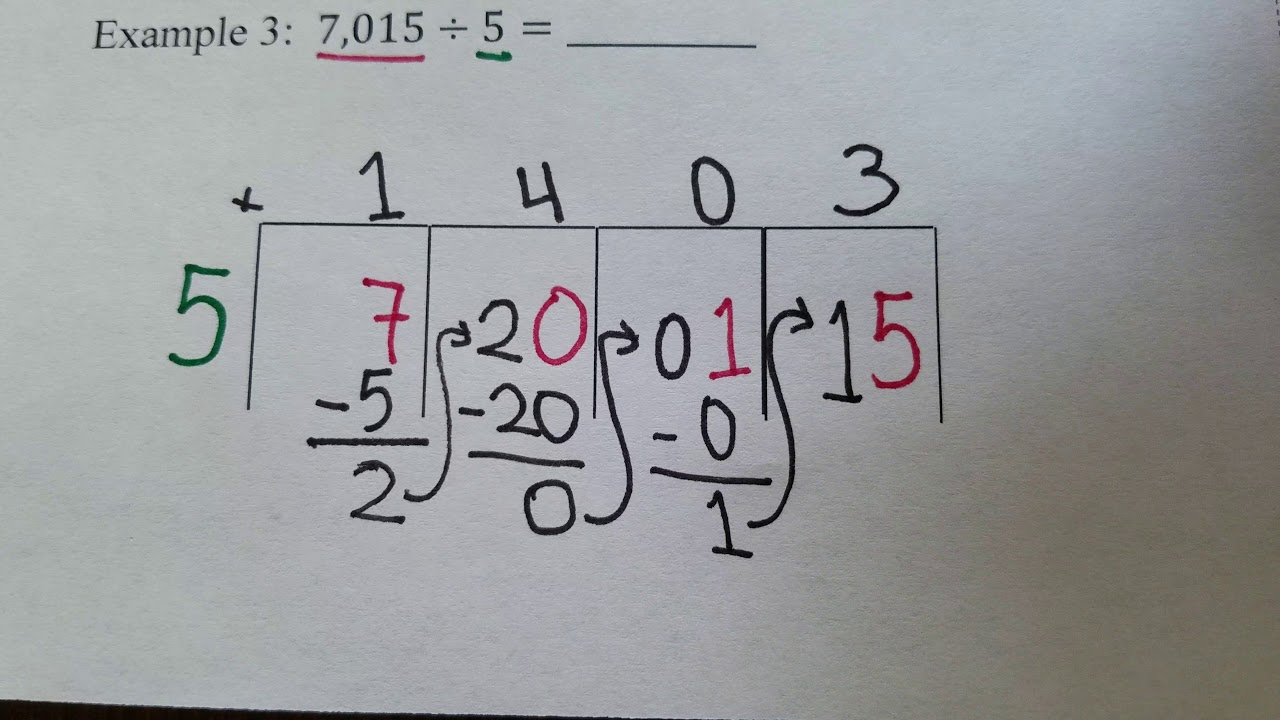 Example 3: 7,015 ÷ 5 = __________
× 1 4 0 3
5 7 20 01 15
-5 -20 -0
2 0 1